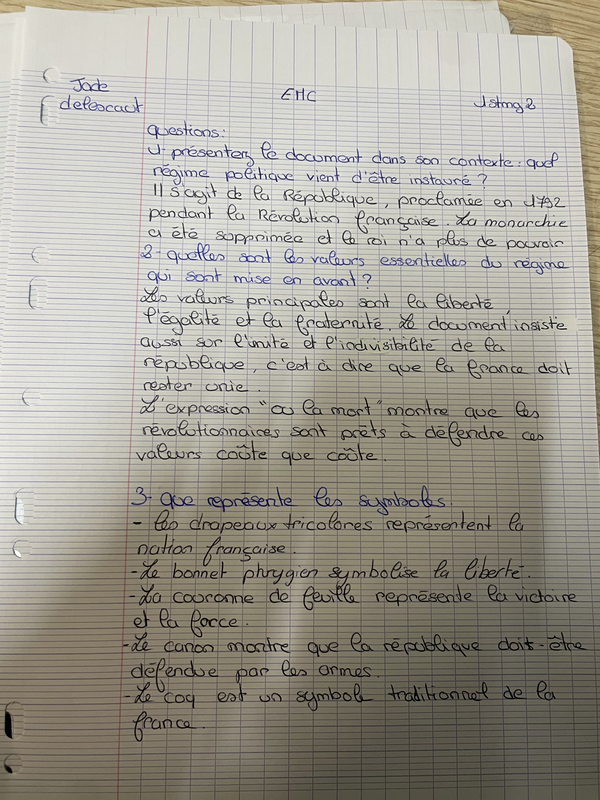 Jade
EMC
1stmg 2
delescaut
questions:
1- présentez le document dans son contexte : quel
régime politique vient d'être instauré ?
Il s'agit de la République, proclamée en 1792
pendant la Révolution française. La monarchie
a été supprimée et le roi n'a plus de pouvoir
2- quelles sont les valeurs essentielles du régime
qui sont mise en avant ?
Les valeurs principales sont la liberté,
l'égalité et la fraternité. Le document insiste
aussi sur l'unité et l'indivisibilité de la
république, c'est à dire que la france doit
rester unie.
L'expression "ou la mort" montre que les
révolutionnaires sont prêts à défendre ces
valeurs coûte que coûte.
3- que représente les symboles.
- les drapeaux tricolores représentent la
nation française.
- Le bonnet phrygien symbolise la liberté.
- La couronne de feuille représente la victoire
et la force.
- Le canon montre que la république doit-être
défendue par les armes.
- Le coq est un symbole traditionnel de la
france.